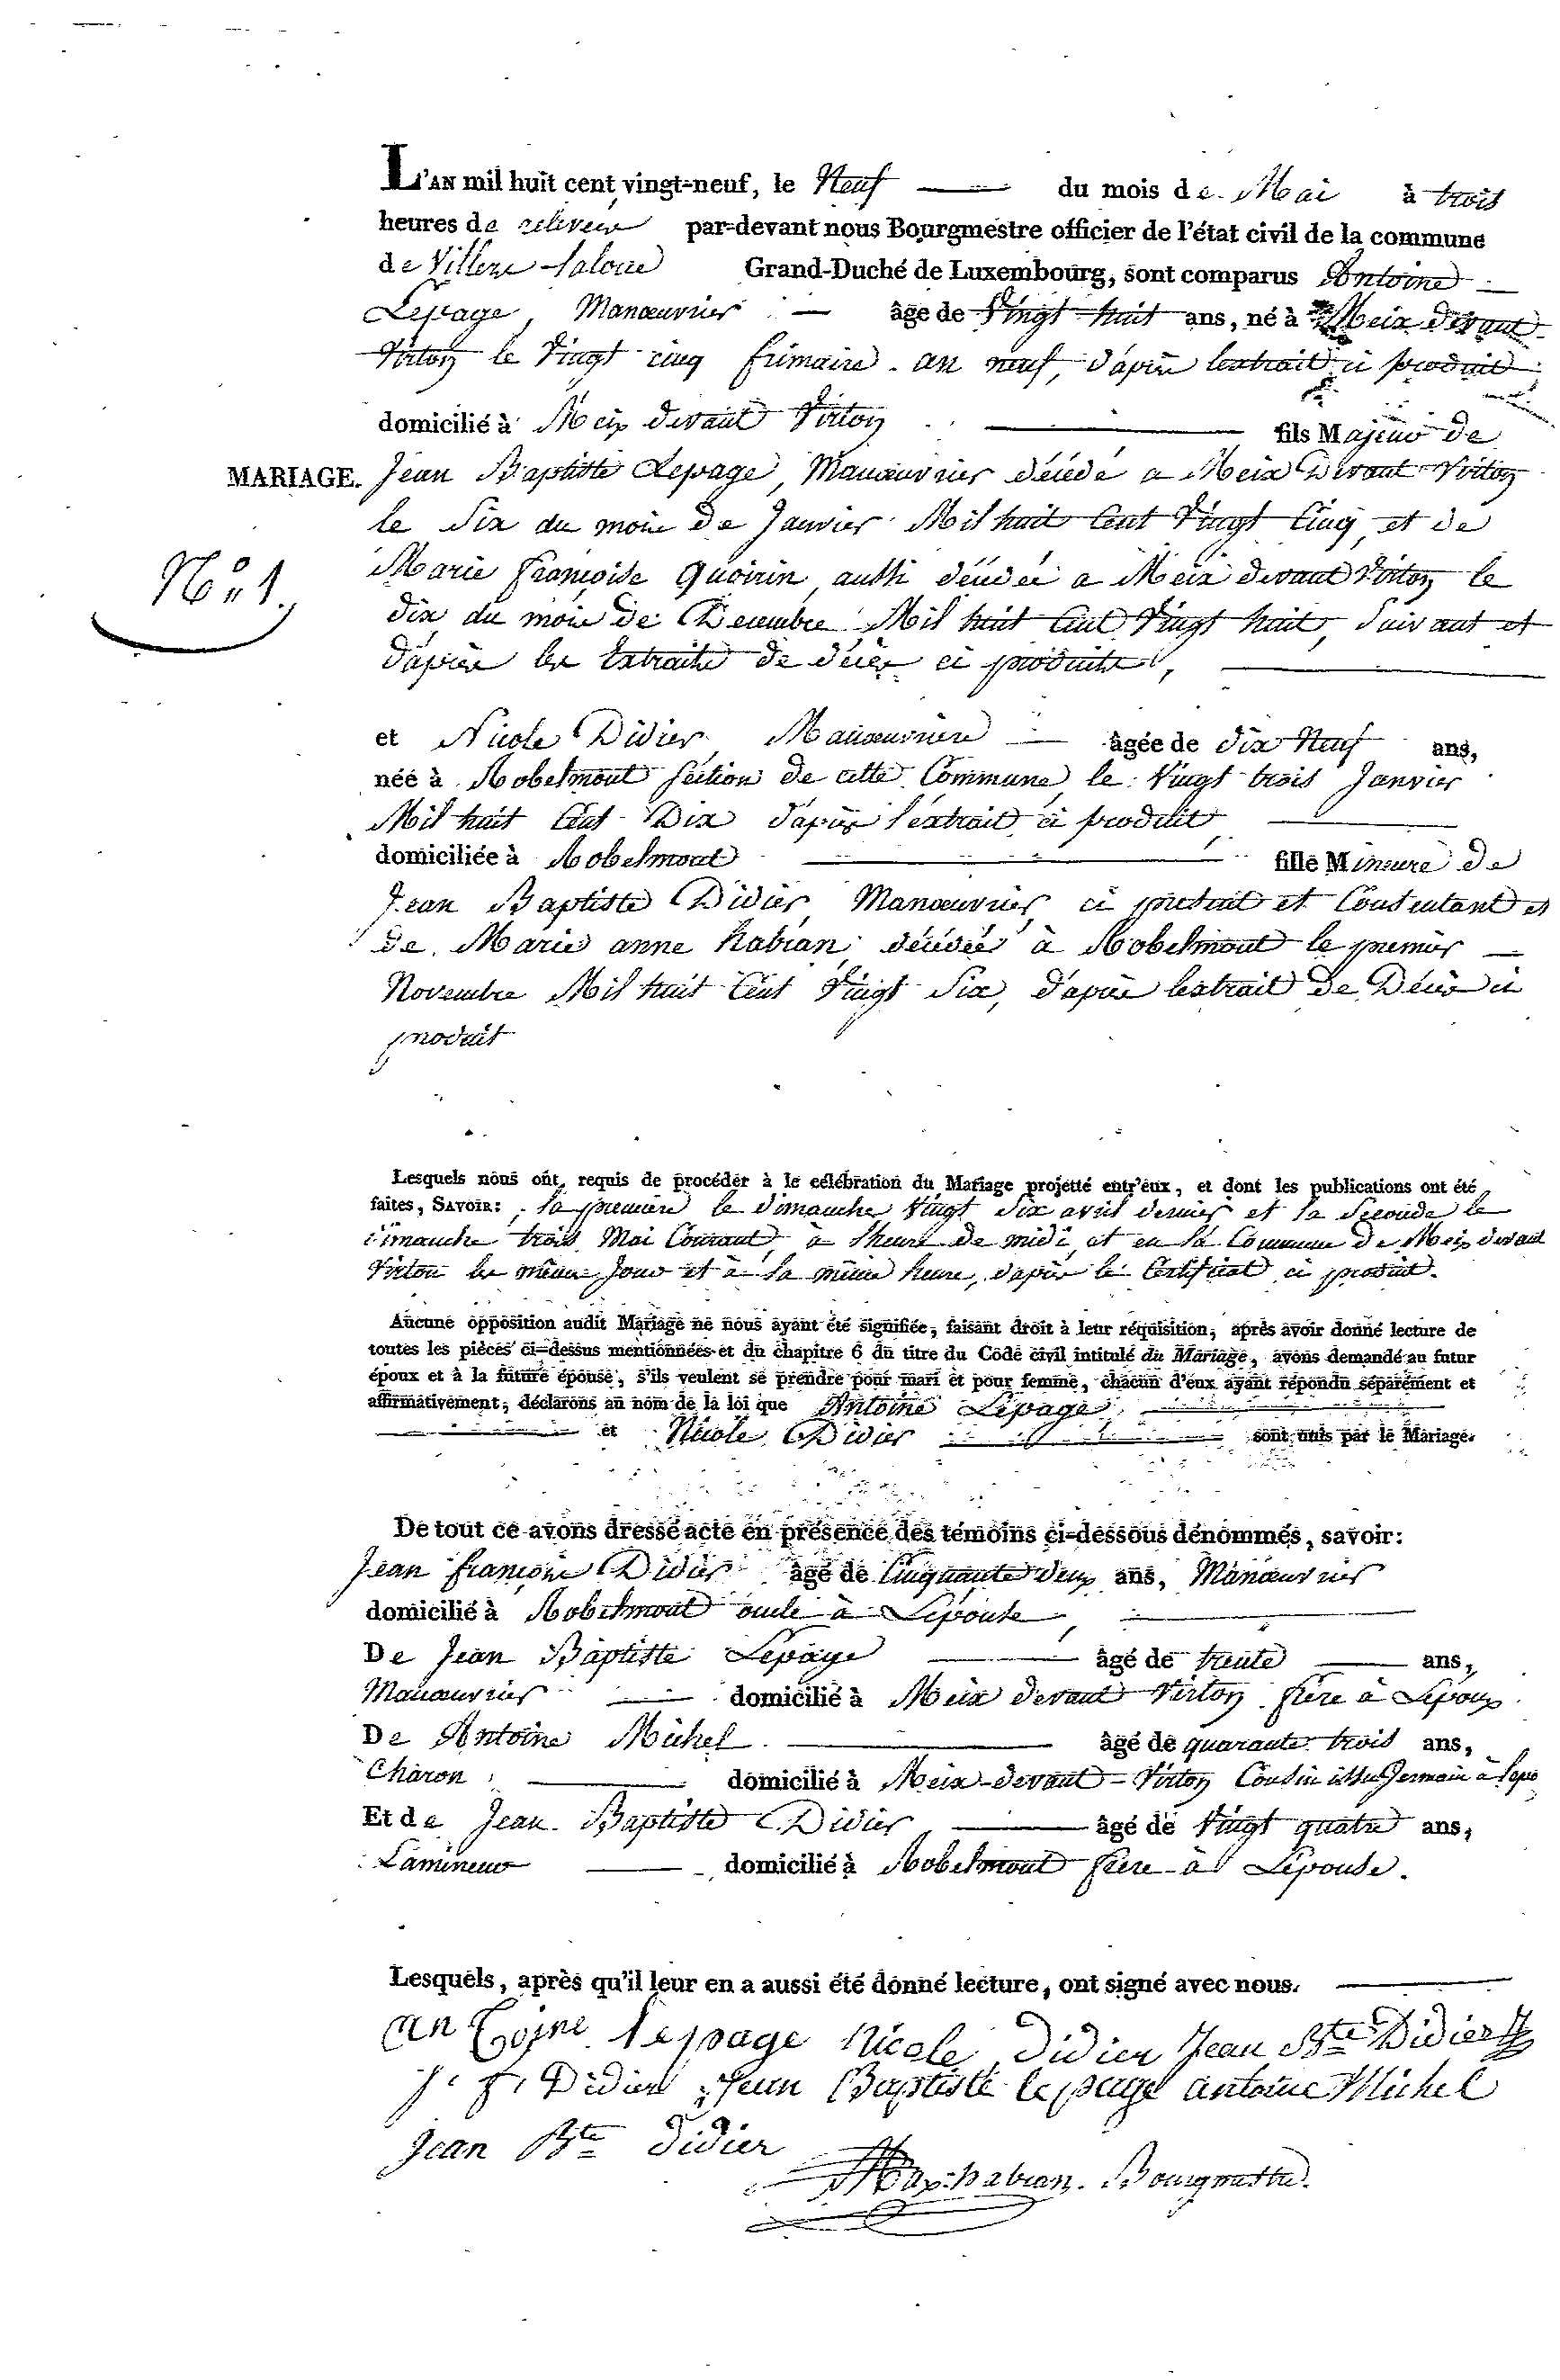 L'AN mil huit cent vingt-neuf, le Neuf du mois de Mai à trois
heures de relevée par-devant nous Bourgmestre officier de l'état civil de la commune
de Villers-la loue Grand-Duché de Luxembourg, sont comparus Antoine
Lepage, Manœuvrier âgé de Vingt huit ans, né à Meix devant
Virton le Vingt cinq frimaire an neuf, d'après l'extrait ci produit
domicilié à Meix devant Virton fils Majeur de
MARIAGE. Jean Baptiste Lepage, Manœuvrier décédé a Meix Devant Virton
le Six du mois de Janvier Mil huit Cent Vingt Cinq, et de
N° 1.
Marie françoise Quoirin, aussi décédée a Meix devant Virton le
dix du mois de Decembre Mil huit Cent Vingt huit, Suivant et
d'après les Extraits de décès ci produits,
et Nicole Didier Manœuvrière âgée de dix Neuf ans,
née à Robelmont Section de cette Commune, le Vingt trois Janvier
Mil huit Cent Dix d'après l'extrait ci produit
domiciliée à Robelmont fille Mineure de
Jean Baptiste Didier, Manœuvrier, ci présent et Consentant et
de Marie anne habran, décédée à Robelmont le premier
Novembre Mil huit Cent Vingt Six, d'après l'extrait de Décès ci
produit
Lesquels nous ont requis de procéder à le célébration du Mariage projetté entr'eux, et dont les publications ont été
faites, SAVOIR: la premiere le dimanche Vingt Six avril dernier et la Seconde le
dimanche trois Mai Courant, à l'heure de midi, et en la Commune de Meix devant
Virton les mêmes Jour et à la même heure, d'après le Certificat ci produit.
Aucune opposition audit Mariage ne nous ayant été signifiée, faisant droit à leur réquisition, après avoir donné lecture de
toutes les pièces ci-dessus mentionnées et du chapitre 6 du titre du Code civil intitulé du Mariage, avons demandé au futur
époux et à la future épouse, s'ils veulent se prendre pour mari et pour femme, chacun d'eux ayant répondu séparément et
affirmativement, déclarons au nom de la loi que Antoine Lepage,
et Nicole Didier sont unis par le Mariage.
De tout ce avons dressé acte en présence des témoins ci-dessous dénommés, savoir:
Jean françois Didier âgé de Cinquante deux ans, Manœuvrier
domicilié à Robelmont oncle à L'épouse,
De Jean Baptiste Lepage âgé de trente ans,
Manœuvrier domicilié à Meix devant Virton frère à L'époux
De Antoine Michel âgé de quarante trois ans,
Charon domicilié à Meix-devant-Virton Cousin issu Germain à l'epo
Et de Jean Baptiste Didier âgé de Vingt quatre ans,
Lamineur domicilié à Robelmont frere à L'épouse.
Lesquels, après qu'il leur en a aussi été donné lecture, ont signé avec nous.
antoine lepage Nicole didier Jean Bte Didier
J. f. Didier Jean Baptiste lepage antoine Michel
Jean Bte didier
Max: habran. Bourgmestre.